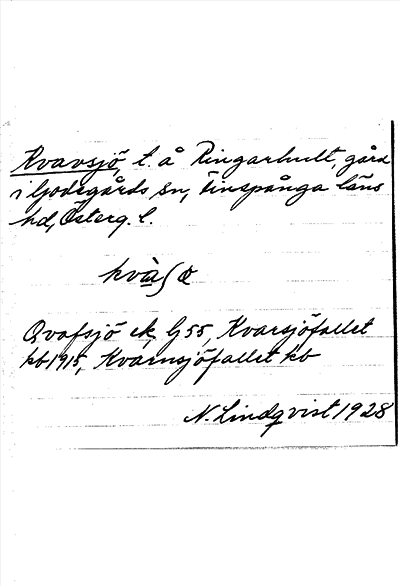 Kvavsjö, t. å Ringarhult, gård
i Godegårds sn, Finspånga läns
hd, Österg. l.
kvàʃö
Qvafsjö ek G55, Kvarsjöfallet
kb 1915, Kvarnsjöfallet kb
N. Lindqvist 1928